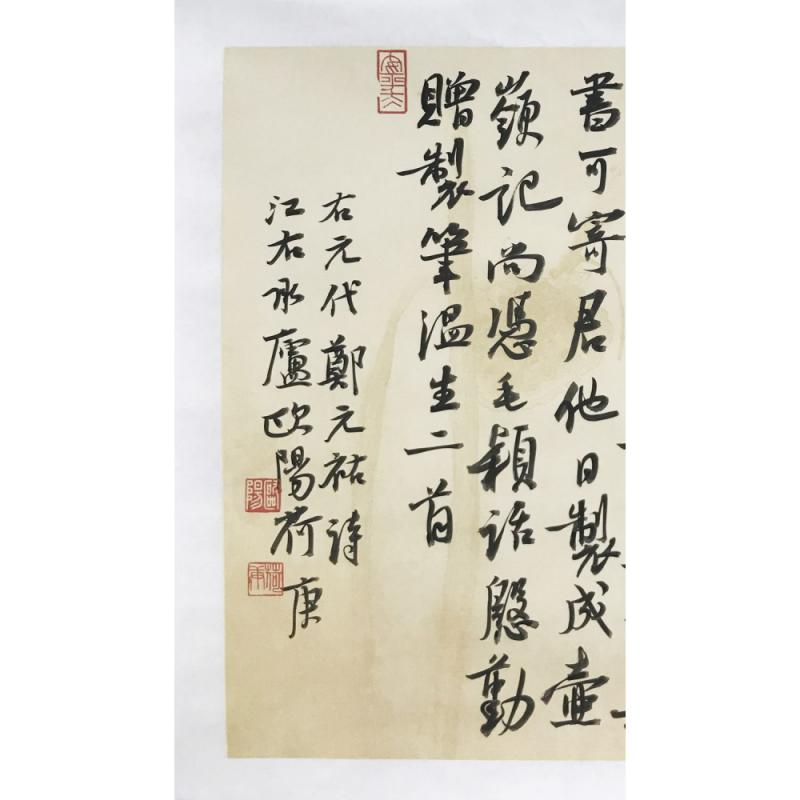 書可寄君他日製成壺
嶺記尚憑毛穎話慇勤
贈製筆溫生二首
右元代鄭元祐詩
江右承廬歐陽荷庚
歐陽
荷庚